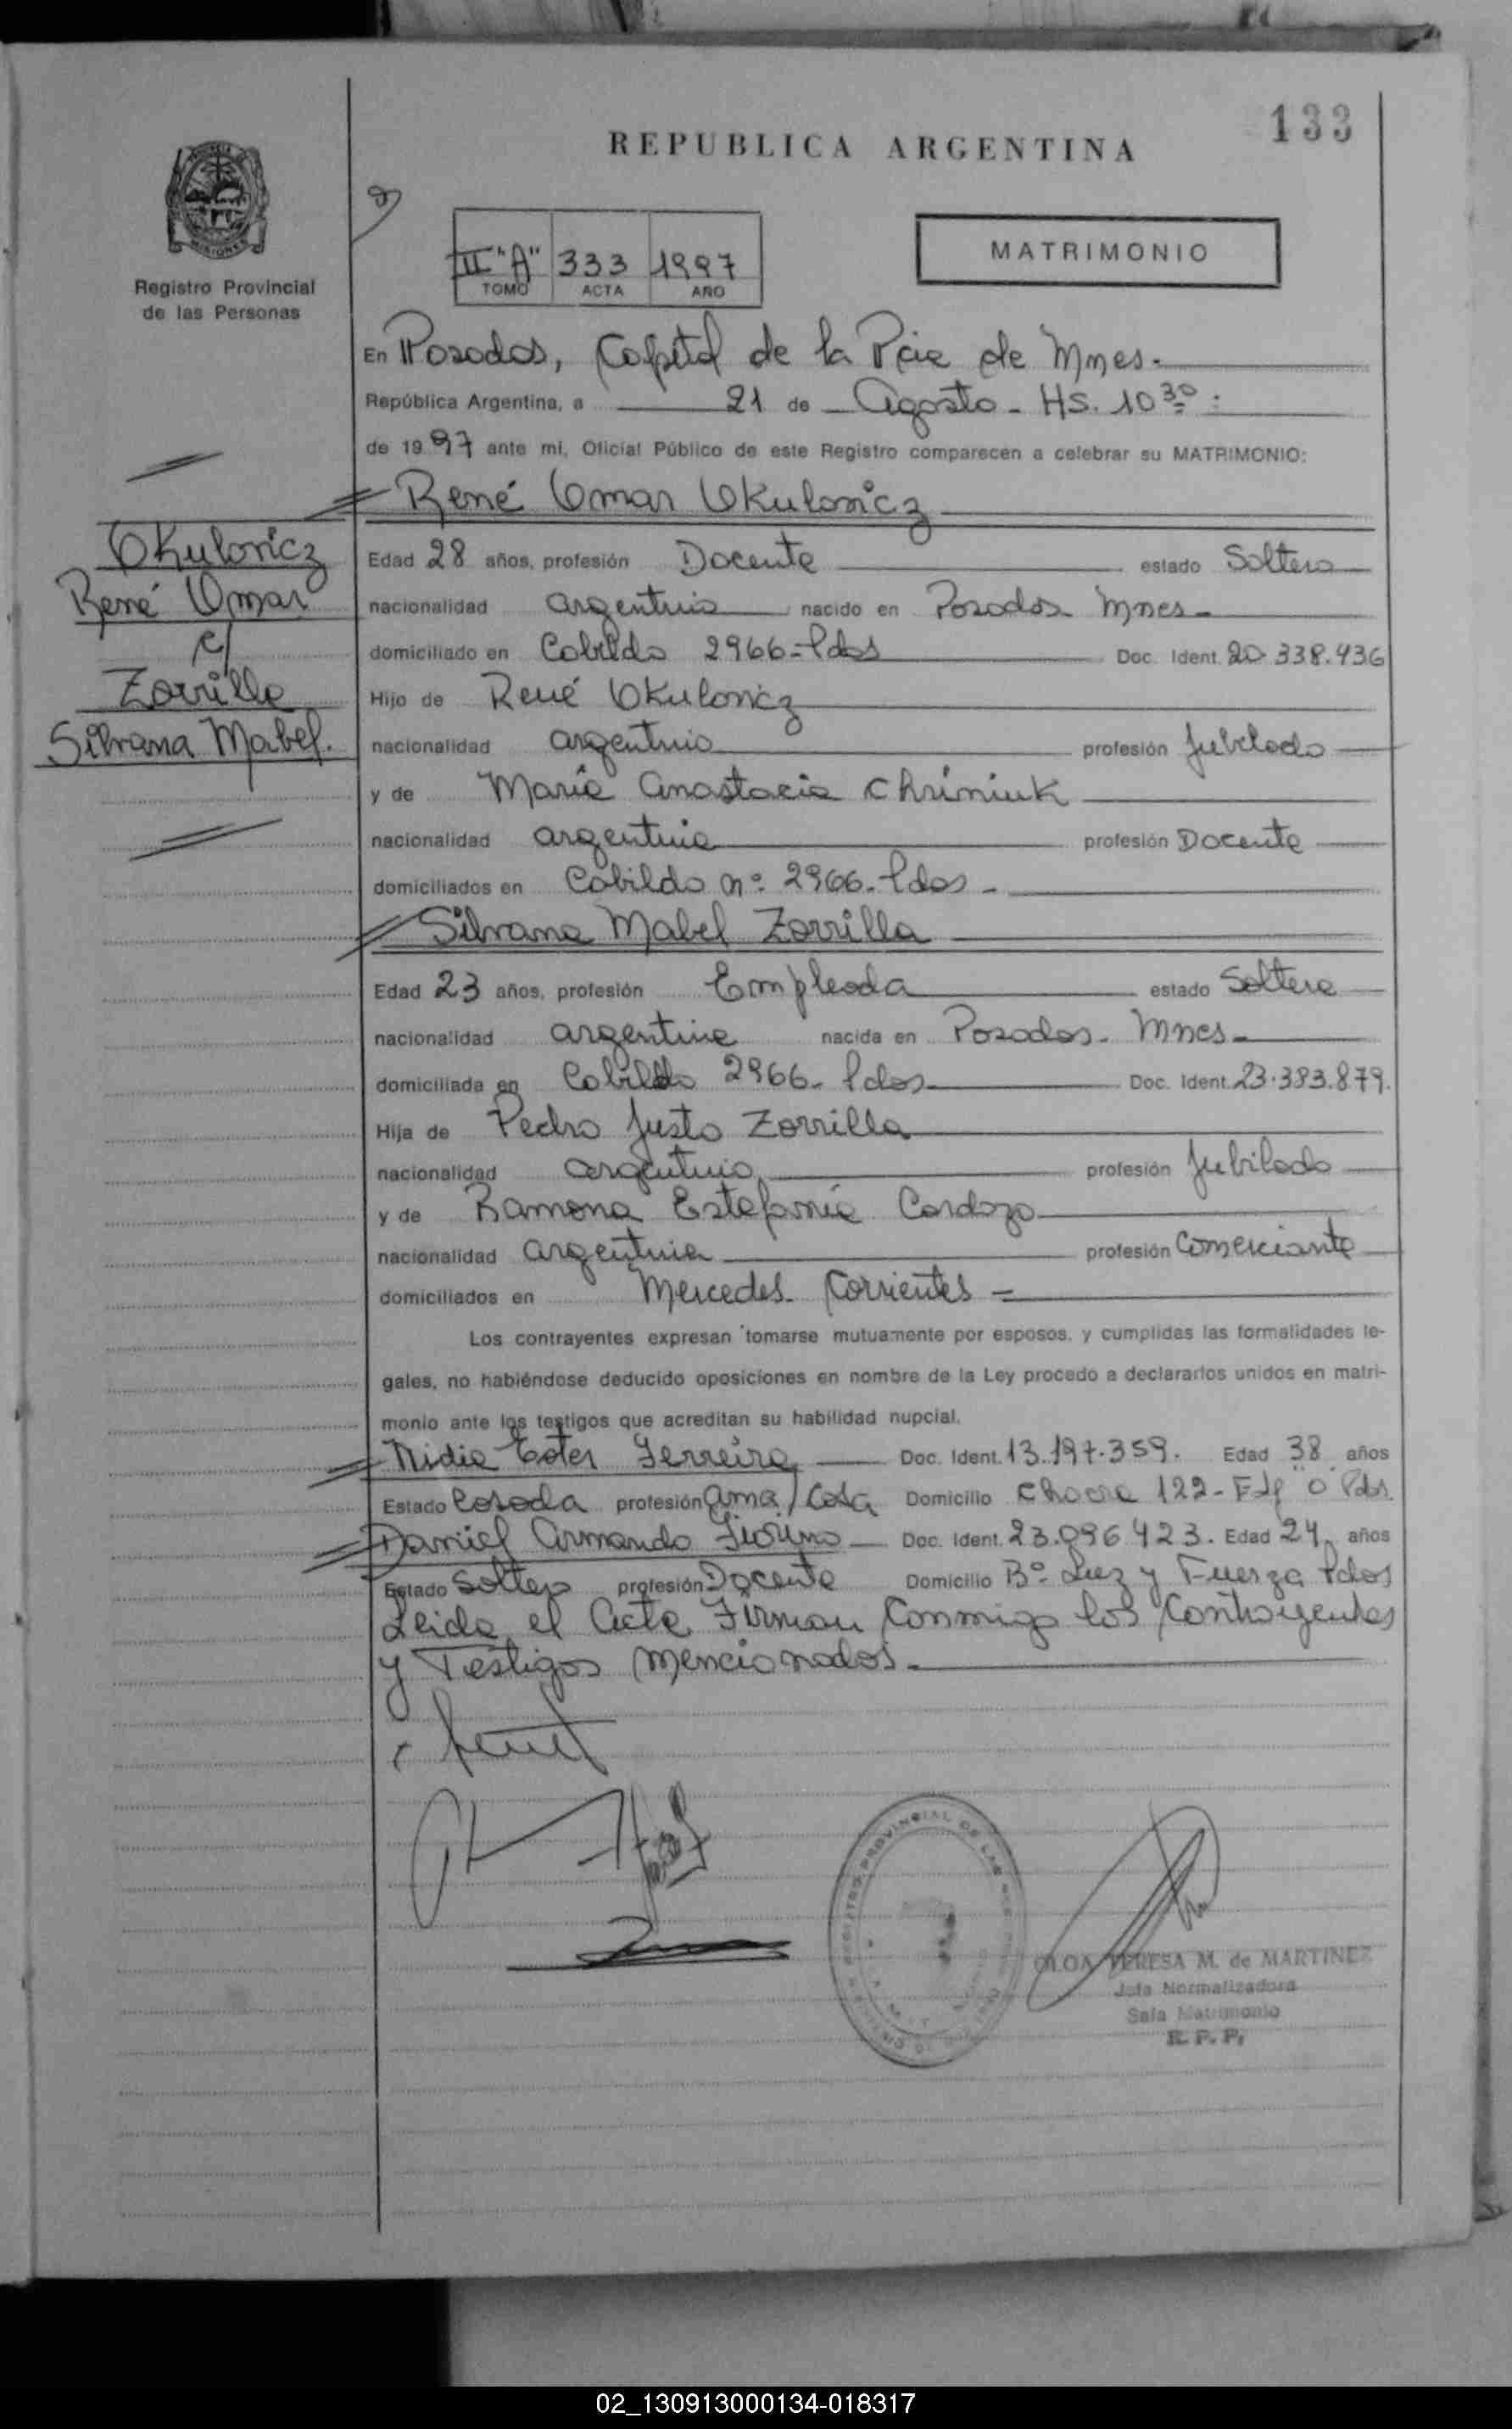 133
REPUBLICA ARGENTINA
II "A" 333 1997
TOMO ACTA AÑO
MATRIMONIO
Registro Provincial
de las Personas
En Posadas, Capital de la Pcia de Mnes.
República Argentina, a 21 de Agosto - HS. 10 30
de 1997 ante mi, Oficial Público de este Registro comparecen a celebrar su MATRIMONIO:
René Omar Okulovicz
Okulovicz
René Omar
c/
Zorrilla
Silvana Mabel.
Edad 28 años, profesión Docente estado Soltero
nacionalidad argentino nacido en Posadas Mnes -
domiciliado en Cabildo 2966 - Pdas Doc. Ident. 20.338.436
Hijo de René Okulovicz
nacionalidad argentino profesión Jubilado
y de María Anastacia Chriniuk
nacionalidad argentina profesión Docente
domiciliados en Cabildo nº 2966 - Pdas -
Silvana Mabel Zorrilla
Edad 23 años, profesión Empleada estado Soltera
nacionalidad argentina nacida en Posadas - Mnes -
domiciliada en Cabildo 2966 - Pdas Doc. Ident. 23.383.879.
Hija de Pedro Justo Zorrilla
nacionalidad argentino profesión Jubilado
y de Ramona Estefanía Cardozo
nacionalidad argentina profesión Comerciante
domiciliados en Mercedes - Corrientes =
Los contrayentes expresan tomarse mutuamente por esposos, y cumplidas las formalidades le-
gales, no habiéndose deducido oposiciones en nombre de la Ley procedo a declararlos unidos en matri-
monio ante los testigos que acreditan su habilidad nupcial.
Nidia Ester Ferreira Doc. Ident. 13.197.359. Edad 38 años
Estado Casada profesión ama/Casa Domicilio Chacra 122 - Edf "O" Pdas.
Daniel Armando Fiorino Doc. Ident. 23.096.423. Edad 24 años
Estado Soltero profesión Docente Domicilio Bº Luz y Fuerza Pdas
Leida el Acta Firman Conmigo los Contrayentes
y Testigos mencionados.
TERESA M. de MARTINEZ
Jefa Normalizadora
Sala Matrimonio
R. P. P.
02_130913000134-018317